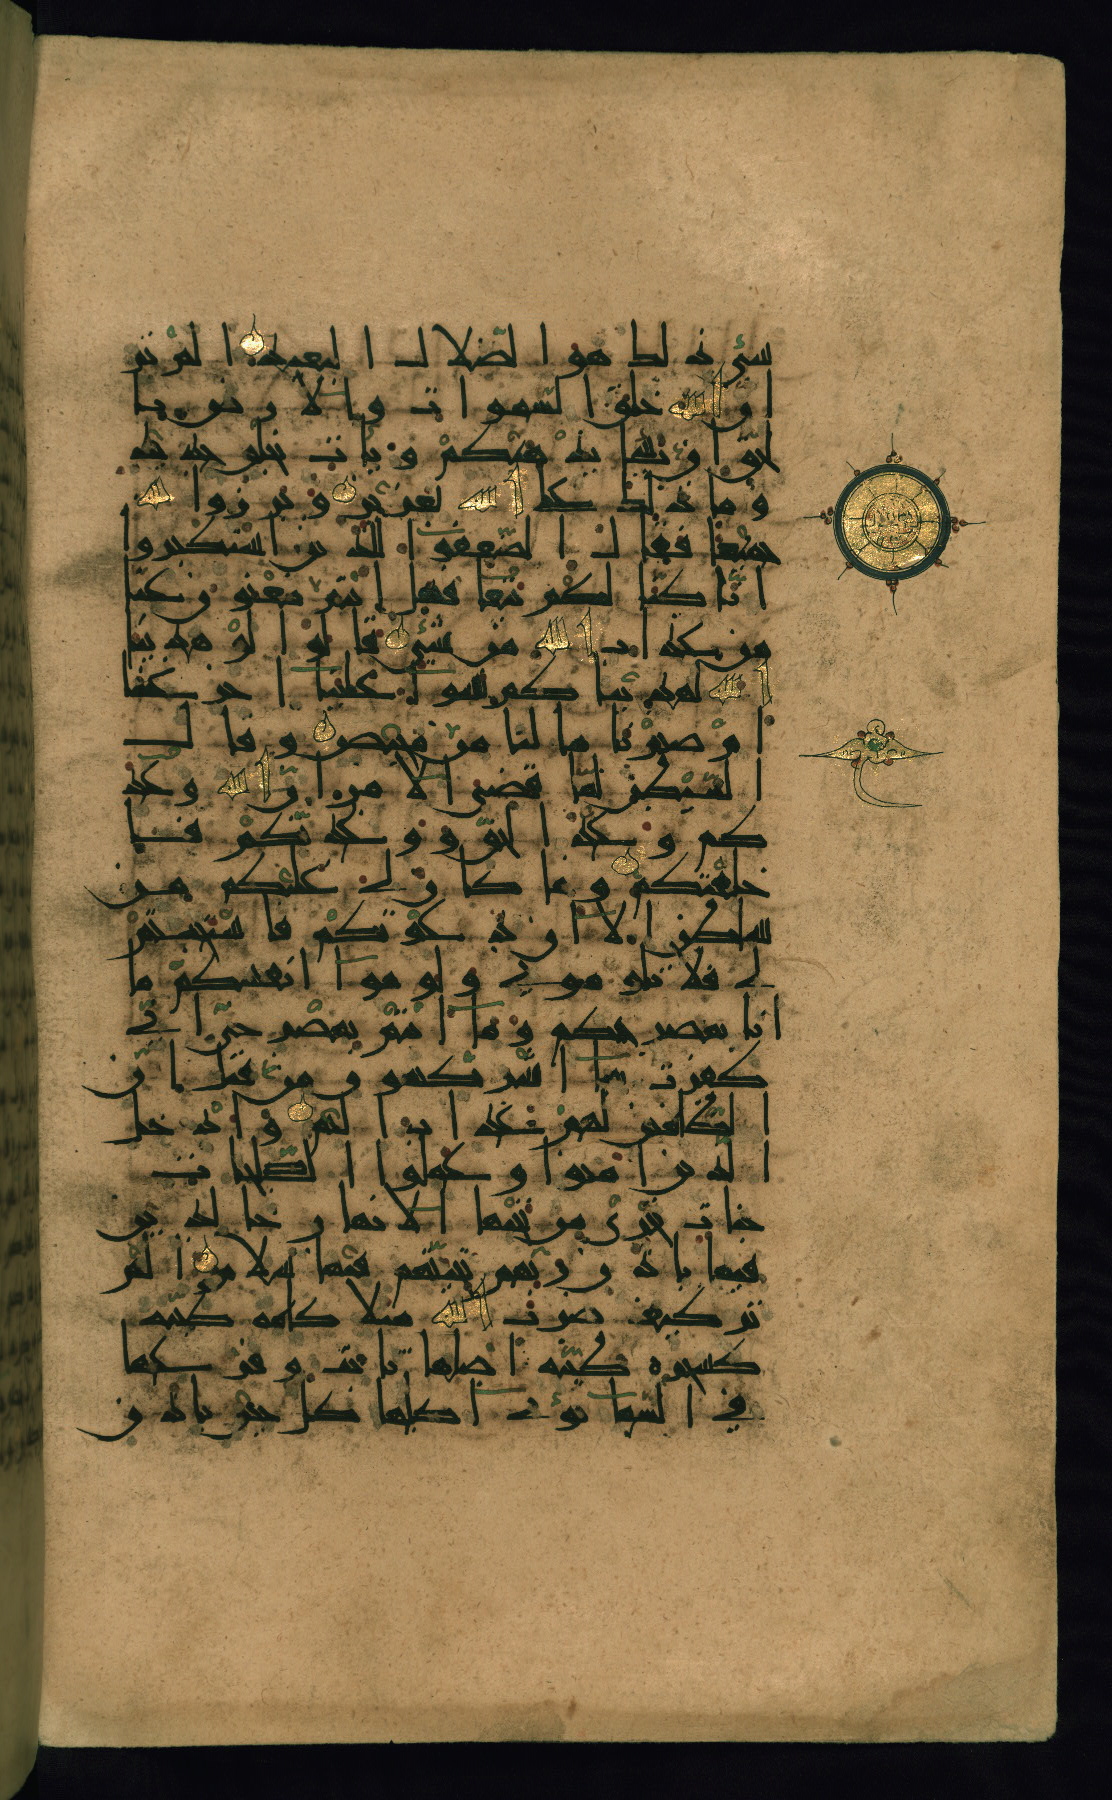 شيء ذلك هو الضلال البعيد الم تر
ان الله خلق السموات والارض با
لحق ان يشا يذهبكم ويات بخلق جديد
وما ذلك على الله بعزيز وبرزوا لله
جميعا فقال الضعفوا للذين استكبروا
انا كنا لكم تبعا فهل انتم مغنون عنا
من عذاب الله من شيء قالوا لو هدينا
الله لهديناكم سوا علينا اجزعنا
ام صبرنا ما لنا من محيص وقال
الشيطن لما قضي الامر ان الله وعد
كم وعد الحق ووعدتكم فا
خلفتكم وما كان لي عليكم من
سلطن الا ان دعوتكم فاستجبتم
لي فلا تلوموني ولوموا انفسكم ما
انا بمصرخكم وما انتم بمصرخي اني
كفرت بما اشركتمون من قبل ان
الظالمين لهم عذاب اليم وادخل
الذين امنوا وعملوا الصلحات
جنات تجري من تحتها الانهار خالدين
فيها باذن ربهم تحيتهم فيها سلام الم
تر كيف ضرب الله مثلا كلمة طيبة
كشجرة طيبة اصلها ثابت وفرعها
في السما تؤتي اكلها كل حين باذن